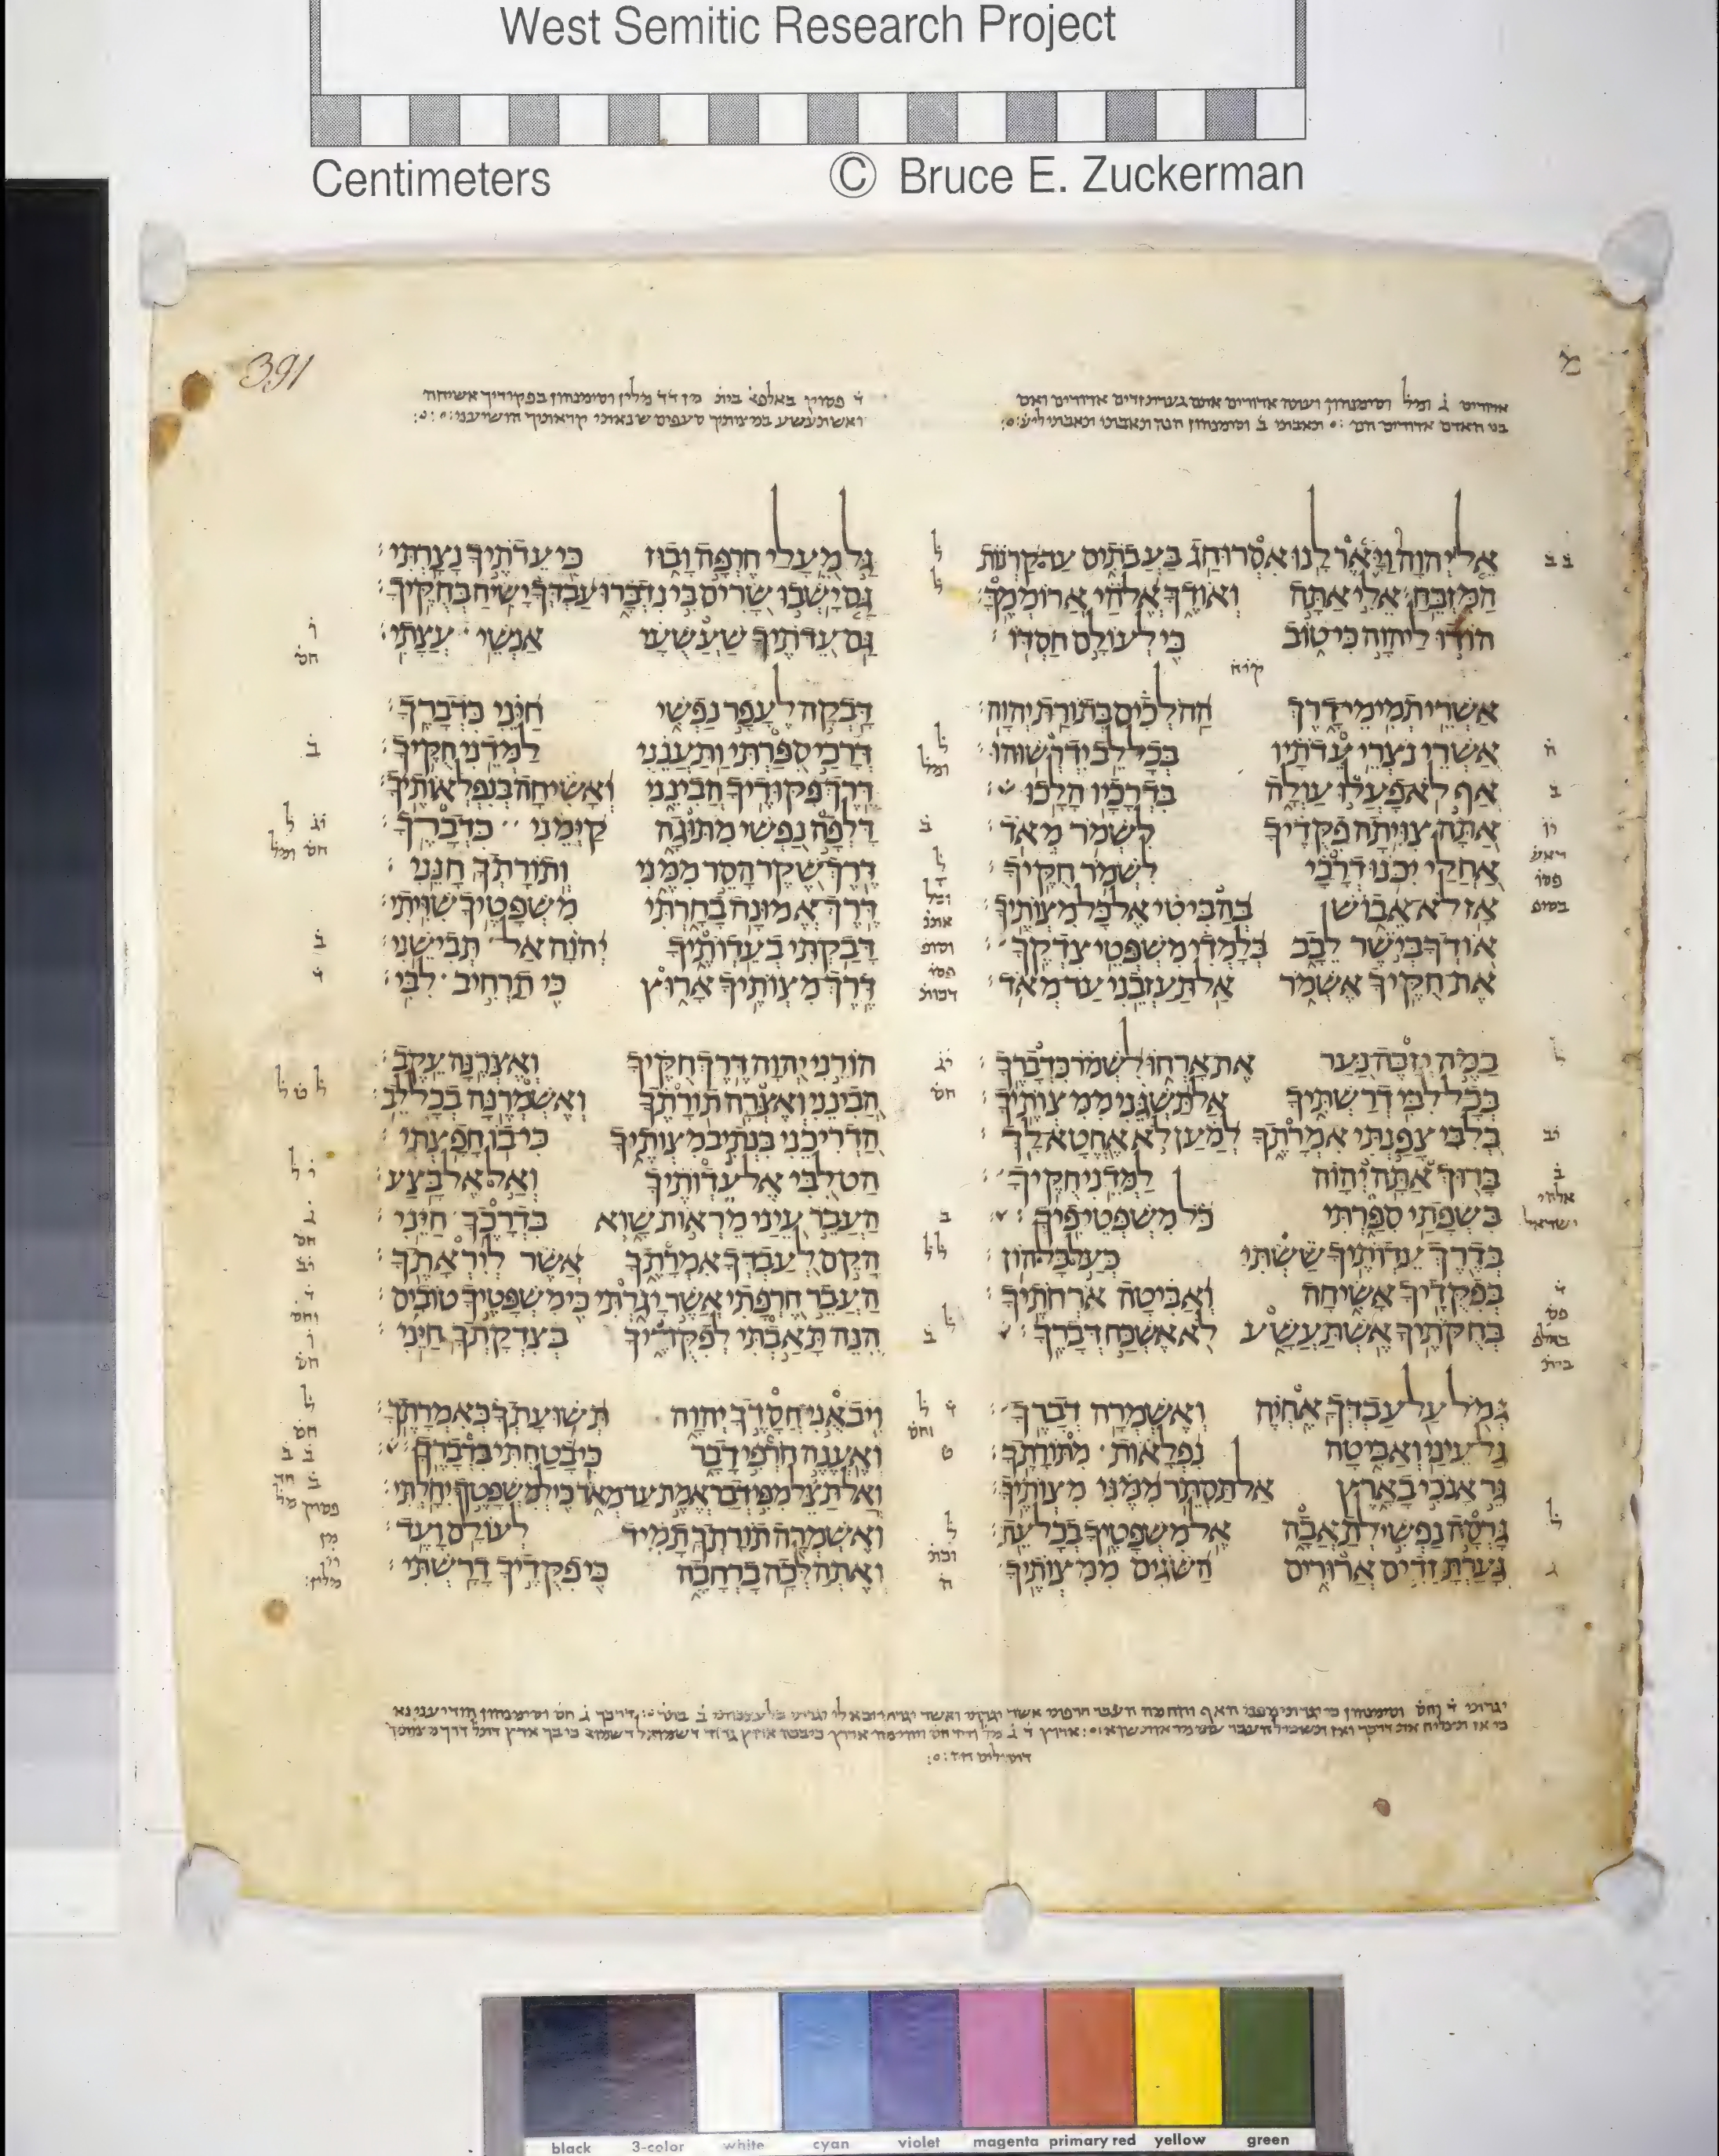 West Semitic Research Project
Centimeters © Bruce E. Zuckerman
391
ארורים ג ומל וסימנהון ועתה ארורים אתם גערת זדים ארורים ואם
בני האדם ארורים הם תאבתי ב וסימנהון הנה תאבתי תאבתי
ד פסוק באלפא בית מן ד ד מלין וסימנהון בפקודיך אשיחה
ואשתעשע במצותיך סעפים שנאתי קראתיך הושיעני
אֵל יְהוָה וַיָּאֶר לָנוּ אִסְרוּ חַג בַּעֲבֹתִים עַד קַרְנוֹת
הַמִּזְבֵּחַ׃ אֵלִי אַתָּה וְאוֹדֶךָּ אֱלֹהַי אֲרוֹמְמֶךָּ׃
הוֹדוּ לַיהוָה כִּי טוֹב כִּי לְעוֹלָם חַסְדּוֹ׃
קיח
אַשְׁרֵי תְמִימֵי דָרֶךְ הַהֹלְכִים בְּתוֹרַת יְהוָה׃
אַשְׁרֵי נֹצְרֵי עֵדֹתָיו בְּכָל לֵב יִדְרְשׁוּהוּ׃
אַף לֹא פָעֲלוּ עַוְלָה בִּדְרָכָיו הָלָכוּ׃
אַתָּה צִוִּיתָה פִקֻּדֶיךָ לִשְׁמֹר מְאֹד׃
אַחֲלַי יִכֹּנוּ דְרָכָי לִשְׁמֹר חֻקֶּיךָ׃
אָז לֹא אֵבוֹשׁ בְּהַבִּיטִי אֶל כָּל מִצְוֹתֶיךָ׃
אוֹדְךָ בְּיֹשֶׁר לֵבָב בְּלָמְדִי מִשְׁפְּטֵי צִדְקֶךָ׃
אֶת חֻקֶּיךָ אֶשְׁמֹר אַל תַּעַזְבֵנִי עַד מְאֹד׃
בַּמֶּה יְזַכֶּה נַּעַר אֶת אָרְחוֹ לִשְׁמֹר כִּדְבָרֶךָ׃
בְּכָל לִבִּי דְרַשְׁתִּיךָ אַל תַּשְׁגֵּנִי מִמִּצְוֹתֶיךָ׃
בְּלִבִּי צָפַנְתִּי אִמְרָתֶךָ לְמַעַן לֹא אֶחֱטָא לָךְ׃
בָּרוּךְ אַתָּה יְהוָה לַמְּדֵנִי חֻקֶּיךָ׃
בִּשְׂפָתַי סִפַּרְתִּי כֹּל מִשְׁפְּטֵי פִיךָ׃
בְּדֶרֶךְ עֵדְוֹתֶיךָ שַׂשְׂתִּי כְּעַל כָּל הוֹן׃
בְּפִקֻּדֶיךָ אָשִׂיחָה וְאַבִּיטָה אֹרְחֹתֶיךָ׃
בְּחֻקֹּתֶיךָ אֶשְׁתַּעֲשָׁע לֹא אֶשְׁכַּח דְּבָרֶךָ׃
גְּמֹל עַל עַבְדְּךָ אֶחְיֶה וְאֶשְׁמְרָה דְבָרֶךָ׃
גַּל עֵינַי וְאַבִּיטָה נִפְלָאוֹת מִתּוֹרָתֶךָ׃
גֵּר אָנֹכִי בָאָרֶץ אַל תַּסְתֵּר מִמֶּנִּי מִצְוֹתֶיךָ׃
גָּרְסָה נַפְשִׁי לְתַאֲבָה אֶל מִשְׁפָּטֶיךָ בְכָל עֵת׃
גָּעַרְתָּ זֵדִים אֲרוּרִים הַשֹּׁגִים מִמִּצְוֹתֶיךָ׃
גַּל מֵעָלַי חֶרְפָּה וָבוּז כִּי עֵדֹתֶיךָ נָצָרְתִּי׃
גַּם יָשְׁבוּ שָׂרִים בִּי נִדְבָּרוּ עַבְדְּךָ יָשִׂיחַ בְּחֻקֶּיךָ׃
גַּם עֵדֹתֶיךָ שַׁעֲשֻׁעָי אַנְשֵׁי עֲצָתִי׃
דָּבְקָה לֶעָפָר נַפְשִׁי חַיֵּנִי כִּדְבָרֶךָ׃
דְּרָכַי סִפַּרְתִּי וַתַּעֲנֵנִי לַמְּדֵנִי חֻקֶּיךָ׃
דֶּרֶךְ פִּקּוּדֶיךָ הֲבִינֵנִי וְאָשִׂיחָה בְּנִפְלְאוֹתֶיךָ׃
דָּלְפָה נַפְשִׁי מִתּוּגָה קַיְּמֵנִי כִּדְבָרֶךָ׃
דֶּרֶךְ שֶׁקֶר הָסֵר מִמֶּנִּי וְתוֹרָתְךָ חָנֵּנִי׃
דֶּרֶךְ אֱמוּנָה בָחָרְתִּי מִשְׁפָּטֶיךָ שִׁוִּיתִי׃
דָּבַקְתִּי בְעֵדְוֹתֶיךָ יְהוָה אַל תְּבִישֵׁנִי׃
דֶּרֶךְ מִצְוֹתֶיךָ אָרוּץ כִּי תַרְחִיב לִבִּי׃
הוֹרֵנִי יְהוָה דֶּרֶךְ חֻקֶּיךָ וְאֶצְּרֶנָּה עֵקֶב׃
הֲבִינֵנִי וְאֶצְּרָה תוֹרָתֶךָ וְאֶשְׁמְרֶנָּה בְכָל לֵב׃
הַדְרִיכֵנִי בִּנְתִיב מִצְוֹתֶיךָ כִּי בוֹ חָפָצְתִּי׃
הַט לִבִּי אֶל עֵדְוֹתֶיךָ וְאַל אֶל בָּצַע׃
הַעֲבֵר עֵינַי מֵרְאוֹת שָׁוְא בִּדְרָכֶךָ חַיֵּנִי׃
הָקֵם לְעַבְדְּךָ אִמְרָתֶךָ אֲשֶׁר לְיִרְאָתֶךָ׃
הַעֲבֵר חֶרְפָּתִי אֲשֶׁר יָגֹרְתִּי כִּי מִשְׁפָּטֶיךָ טוֹבִים׃
הִנֵּה תָּאַבְתִּי לְפִקֻּדֶיךָ בְּצִדְקָתְךָ חַיֵּנִי׃
וִיבֹאֻנִי חֲסָדֶךָ יְהוָה תְּשׁוּעָתְךָ כְּאִמְרָתֶךָ׃
וְאֶעֱנֶה חֹרְפִי דָבָר כִּי בָטַחְתִּי בִּדְבָרֶךָ׃
וְאַל תַּצֵּל מִפִּי דְבַר אֱמֶת עַד מְאֹד כִּי לְמִשְׁפָּטֶךָ יִחָלְתִּי׃
וְאֶשְׁמְרָה תוֹרָתְךָ תָמִיד לְעוֹלָם וָעֶד׃
וְאֶתְהַלְּכָה בָרְחָבָה כִּי פִקֻּדֶיךָ דָרָשְׁתִּי׃
black 3-color white cyan violet magenta primary red yellow green